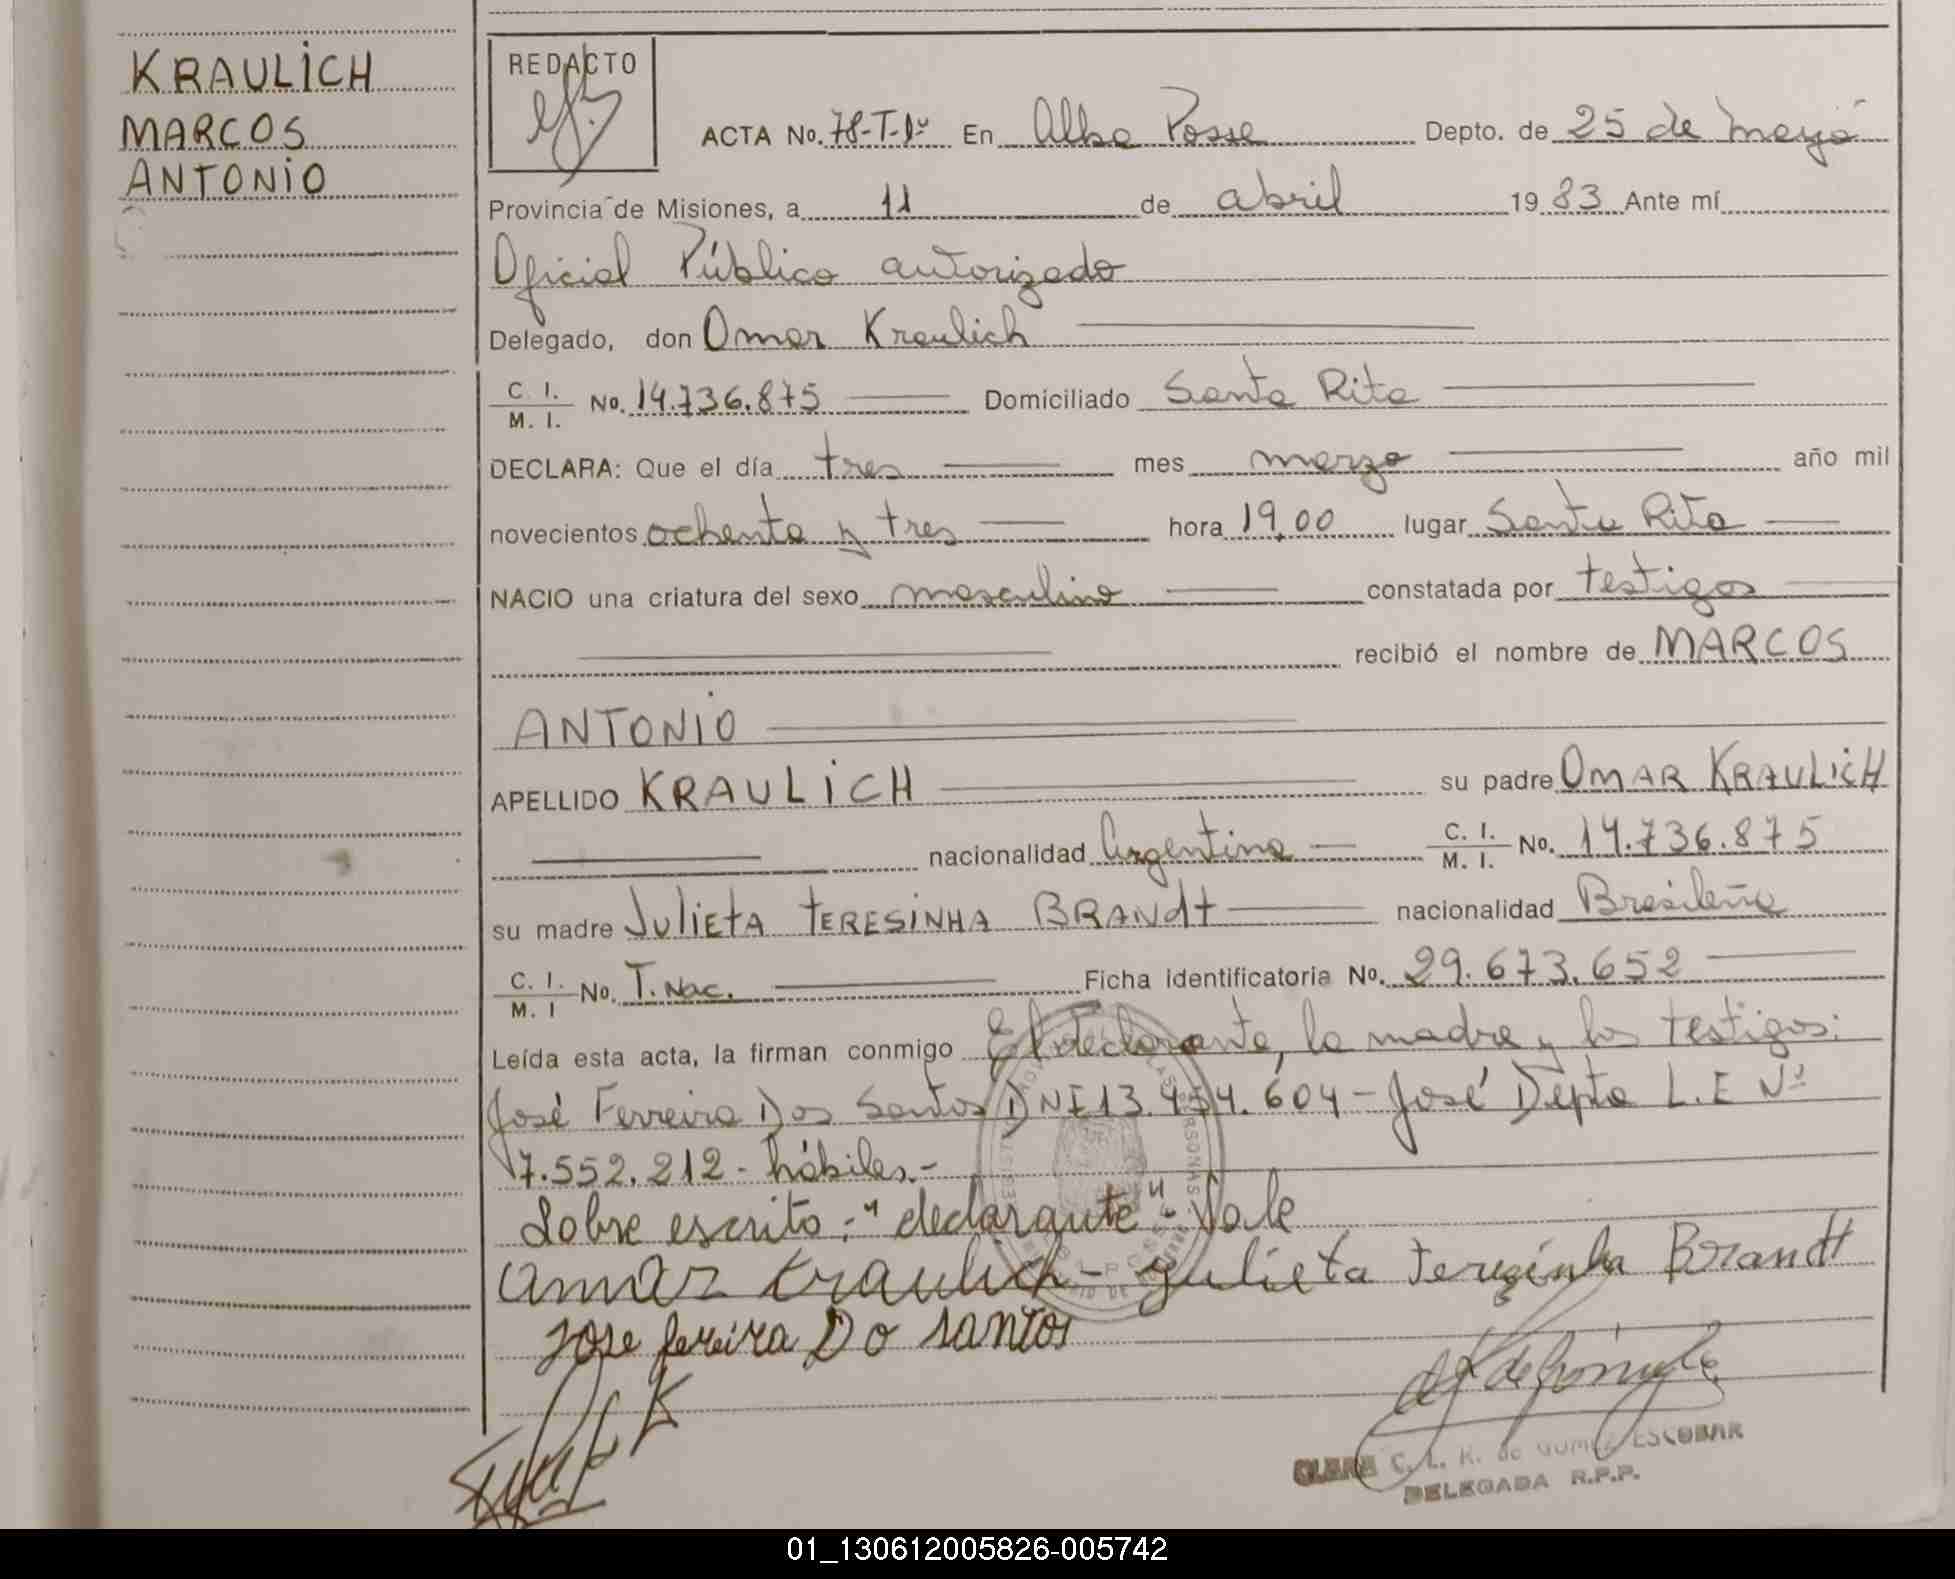 KRAULICH
MARCOS
ANTONIO
REDACTO
ACTA No. 78-T-1º En Alba Posse Depto. de 25 de Mayo
Provincia de Misiones, a 11 de abril 1983 Ante mí
Oficial Público autorizado
Delegado, don Omar Kraulich
C. I. / M. I. No. 14.736.875 Domiciliado Santa Rita
DECLARA: Que el día tres mes marzo año mil
novecientos ochenta y tres hora 19,00 lugar Santa Rita
NACIO una criatura del sexo masculino constatada por testigos
recibió el nombre de MARCOS
ANTONIO
APELLIDO KRAULICH su padre OMAR KRAULICH
nacionalidad Argentina C. I. / M. I. No. 14.736.875
su madre JULIETA TERESINHA BRANDT nacionalidad Brasileña
C. I. / M. I No. T. Nac. Ficha identificatoria No. 29.673.652
Leída esta acta, la firman conmigo El declarante, la madre y los testigos:
José Ferreira Dos Santos DNI 13.454.604 - José Depta L.E Nº
7.552.212 - hábiles.-
Sobre escrito: "declarante" - Vale
Omar Kraulich - Julieta Terezinha Brandt
Jose fereira Do santos
C. L. K. de GOMEZ ESCOBAR
DELEGADA R.P.P.
01_130612005826-005742